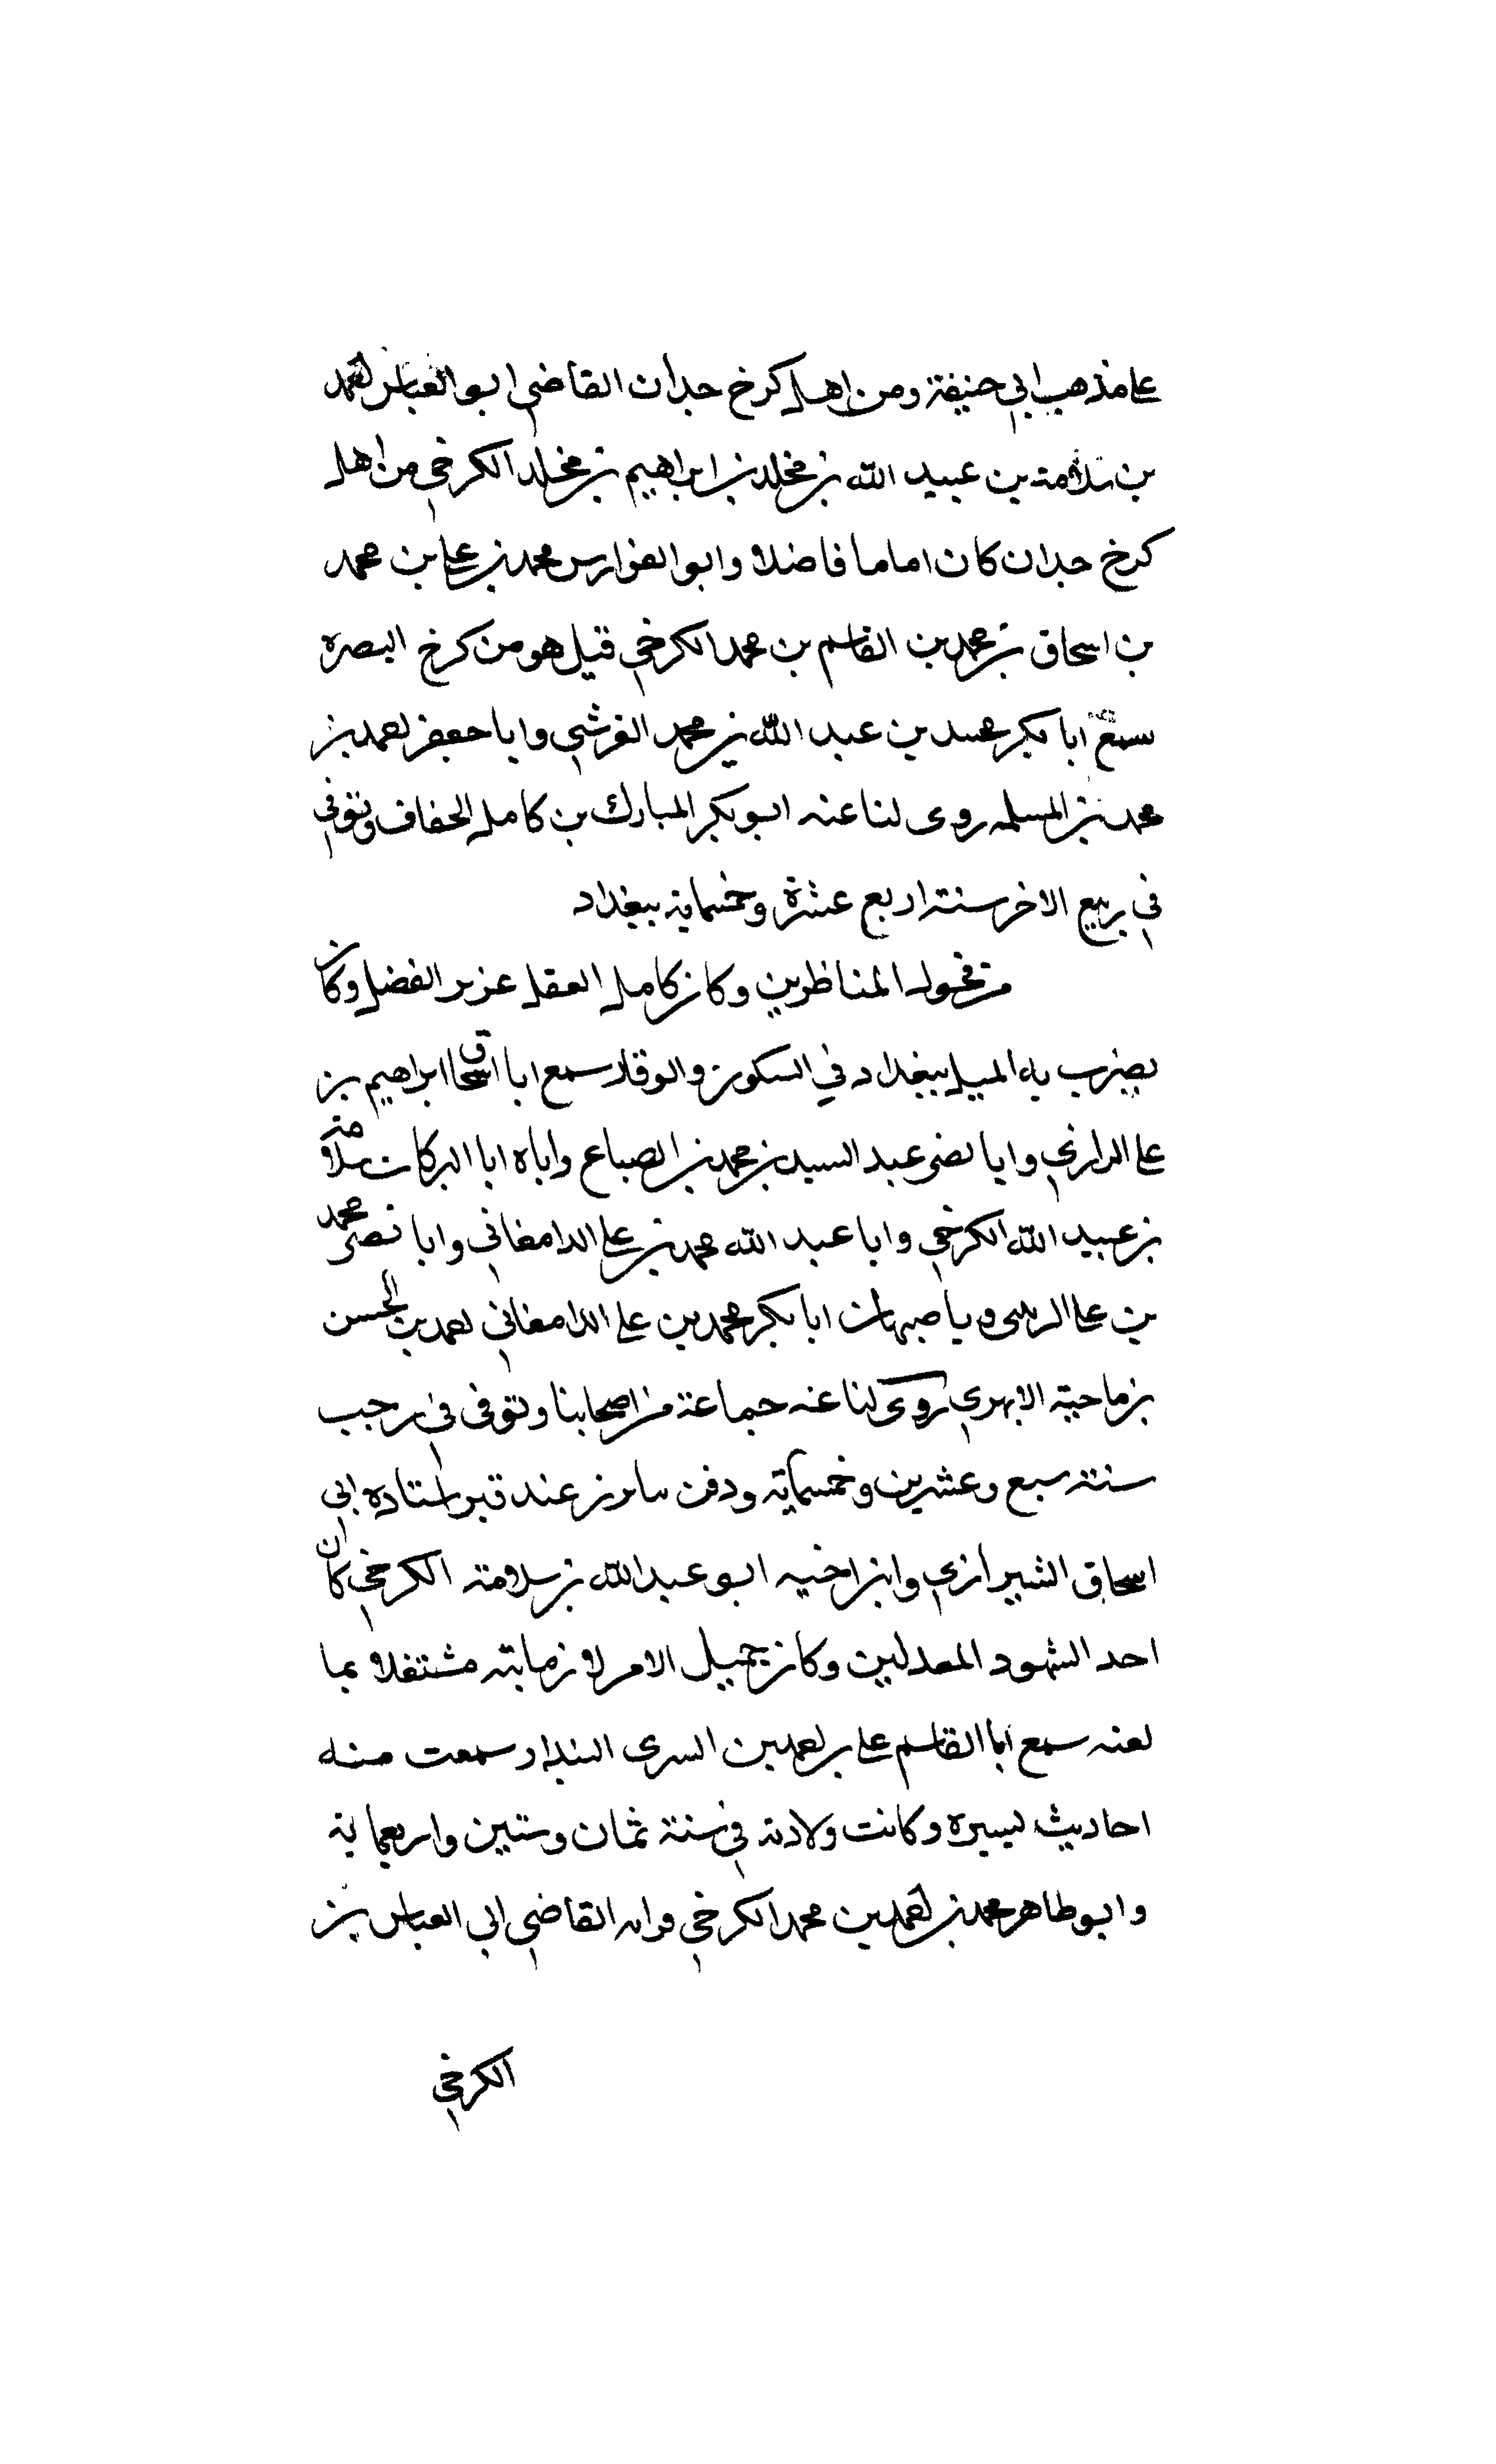 على مذهب ابي حنيفة ومن اهل كرخ جدان القاضي ابو العباس احمد
بن سلامة بن عبيد الله بن مخلد بن ابراهيم بن مخلد الكرخي من اهل
كرخ جدان كان اماما فاضلا وابو الفوارس محمد بن علي بن محمد
بن اسحاق بن محمد بن القاسم بن محمد الكرخي قيل هو من كرخ البصره
سمع ابا بكر محمد بن عبد الله بن محمد القرشي وابا جعفر احمد بن
محمد بن المسلمه روى لنا عنه ابو بكر المبارك بن كامل الخفاف وتوفي
في ربيع الاخر سنة اربع عشرة وخمسماية ببغداد
من فحول المناظرين وكان كامل العقل عزير الفضل وكان
يضرب به المثل ببغداد في السكون والوقار سمع ابا اسحاق ابراهيم بن
علي الرازي وابا نصر عبد السيد بن محمد بن الصباع واباه ابا البركات سلامة
بن عبيد الله الكرخي وابا عبد الله محمد بن علي الدامغاني وابا نصر محمد
بن علي الرسى وباصبهان ابا بكر محمد بن علي الدامغاني احمد بن الحسن
بن ماجة الابهري روى لنا عنه جماعة من اصحابنا وتوفى في رجب
سنة سبع وعشرين وخمسماية ودفن عند قبر استاده ابي
اسحاق الشيرازي وابن اخيه ابو عبد الله بن سلامة الكرخي كان
احد الشهود المعدلين وكان جميل الامر لازما بيته مشتغلا بما
يعنه سمع ابا القاسم علي بن احمد بن السرى البندار سمعت منه
احاديث يسيره وكانت ولادته في سنة ثمان وستين واربعماية
وابو طاهر محمد بن احمد بن محمد الكرخي القاضي ابي العباس بن
الكرخي